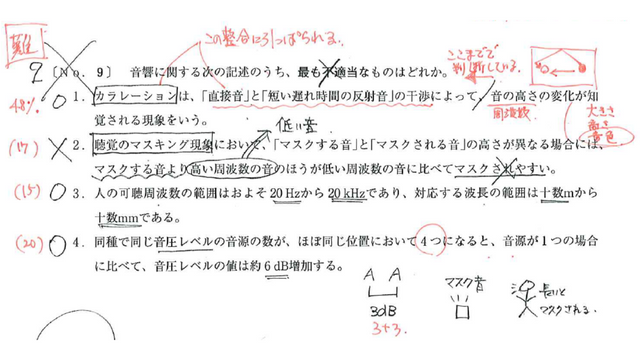 難
この整合に引っぱられる.
ここまでで
判断している.
9 〔No. 9〕 音響に関する次の記述のうち、最も不適当なものはどれか。
48% ○ 1. カラレーションは、「直接音」と「短い遅れ時間の反射音」の干渉によって、音の高さの変化が知
覚される現象をいう。
周波数
大きさ
高さ
音色
低い音
(17) × 2. 聴覚のマスキング現象において、「マスクする音」と「マスクされる音」の高さが異なる場合には、
マスクする音より高い周波数の音のほうが低い周波数の音に比べてマスクされやすい。
(15) ○ 3. 人の可聴周波数の範囲はおよそ20Hzから20kHzであり、対応する波長の範囲は十数mから
十数mmである。
(20) ○ 4. 同種で同じ音圧レベルの音源の数が、ほぼ同じ位置において4つになると、音源が1つの場合
に比べて、音圧レベルの値は約6dB増加する。
A A
3dB
3+3.
マスク音
長いと
マスクされる.